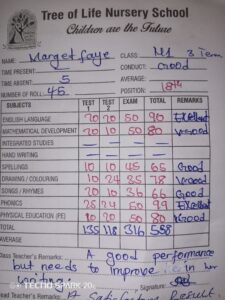 Tree of Life Nursery School
Children are the Future
NAME: Marget faye CLASS M1 3 Term
TIME PRESENT: CONDUCT: Good
TIME ABSENT: 5 AVERAGE:
NUMBER OF ROLL: 45 POSITION: 18th
SUBJECTS TEST 1 TEST 2 EXAM TOTAL REMARKS
ENGLISH LANGUAGE 20 20 50 90 Excellent
MATHEMATICAL DEVELOPMENT 20 10 50 80 V.Good
INTEGRATED STUDIES
HAND WRITING
SPELLINGS 10 10 45 65 Good
DRAWING / COLOURING 10 24 35 78 V.Good
SONGS / RHYMES 20 10 36 66 Good
PHONICS 25 24 50 99 Excellent
PHYSICAL EDUCATION (PE) 10 20 50 80 V.Good
TOTAL 135 118 316 558
AVERAGE
Class Teacher's Remarks: A good performance
but needs to improve in her
position. Signature:
Head Teacher's Remarks: A Satisfactory Result
TECNO SPARK